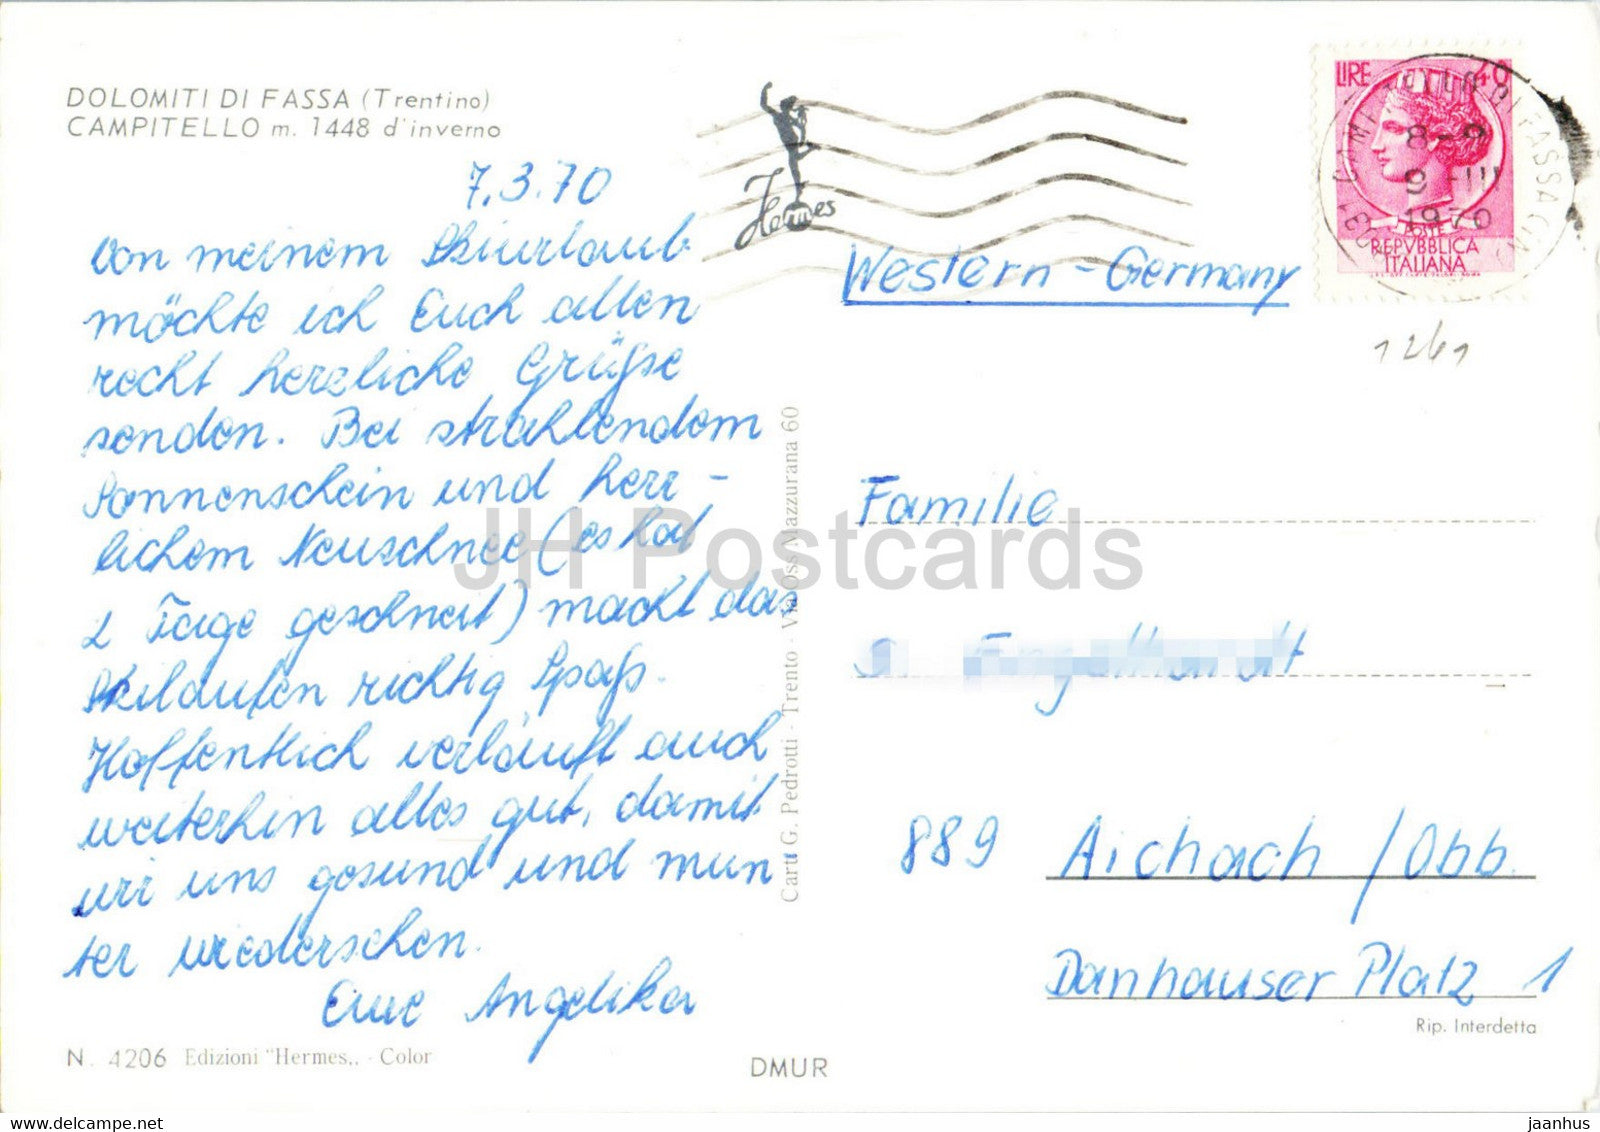 DOLOMITI DI FASSA (Trentino)
CAMPITELLO m. 1448 d'inverno
7.3.70
Von meinem Skiurlaub
möchte ich Euch allen
recht herzliche Grüße
senden. Bei strahlendem
Sonnenschein und herr-
lichem Neuschnee (es hat
2 Tage geschneit) macht das
Skilaufen richtig Spaß.
Hoffentlich verläuft auch
weiterhin alles gut, damit
wir uns gesund und mun
ter wiedersehen.
Eure Angelika
N. 4206 Edizioni "Hermes,, - Color
DMUR
Cart. G. Pedrotti - Trento - Via Oss Mazzurana 60
Hermes
LIRE 40
POSTE
REPVBBLICA
ITALIANA
CAMPITELLO DI FASSA
8-9
9 -III
1970
Western-Germany
1261
Familie
Engelhardt
889 Aichach/Obb.
Danhauser Platz 1
Rip. Interdetta
JH Postcards
https://www.delcampe.net
jaanhus